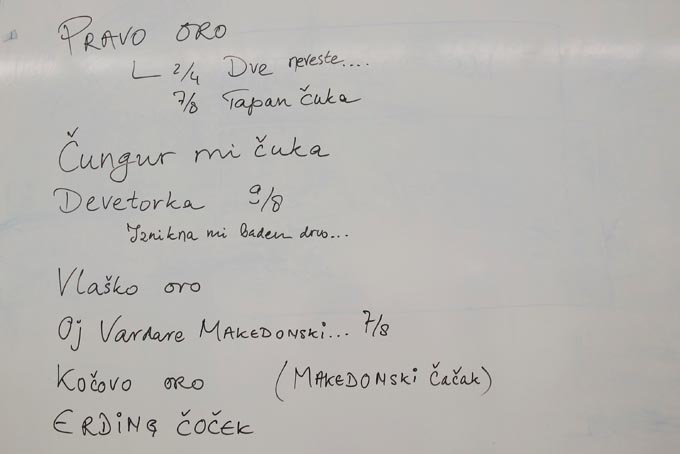 PRAVO ORO
2/4 Dve neveste....
7/8 Tapan čuka
Čungur mi čuka
Devetorka 9/8
Iznikna mi badem drvo...
Vlaško oro
Oj Vardare MAKEDONSKI... 7/8
Kočovo oro (MAKEDONSKi čačak)
ERDiNÇ ČOČEK